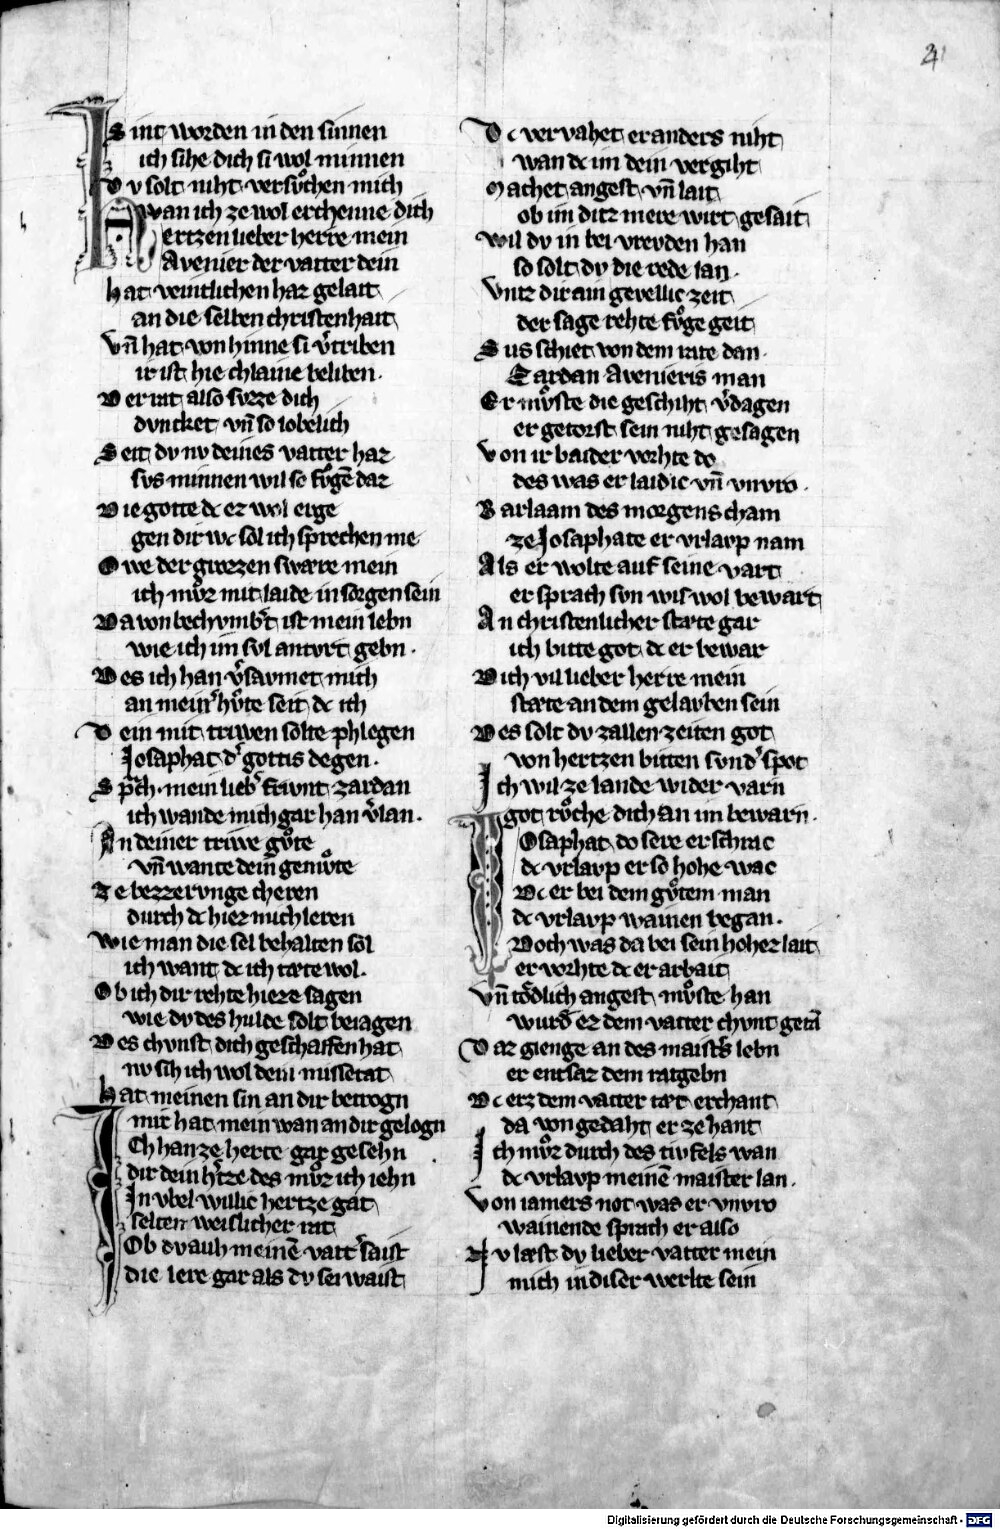 21
Sint worden in den sinnen
ich sihe dich si wol minnen
Dv solt niht versvͦchen mich
wan ich ze wol erchenne dich
Hertzen lieber herre mein
Avenier der vatter dein
hat veintlichen haz gelait
an die selben christenhait
Vn̄ hat von hinne si v̓triben
ir ist hie chlaine beliben.
Der rat also svzze dich
dvncket vn̄ so lobelich
Seit dv nv deines vatter haz
svs minnen wil so fvͦgē daz
Die gotte dc er wol erge
gen dir wc sol ich sprechen me
Owe der grozzen swære mein
ich mvͦz mit laide in sorgen sein
Da von bechvmb̓t ist mein lebn
wie ich im svl antvrt gebn.
Des ich han v̓savmet mich
an meinr̓ hvͦte seit dc ich
Dein mit triwen solte phlegen
Josaphat d̓ gottis degen.
Sp̄ch mein lieb̓ frivnt zardan
ich wande mich gar han v̓lan.
An deiner triwe gvͦte
vn̄ wante dein̄ gemvͦte
Ze bezzervnge cheren
durch dc hiez mich leren
wie man die sel behalten sol
ich want dc ich tæte wol.
Ob ich dir rehte hieze sagen
wie dv des hulde solt beiagen
Des chvnst dich geschaffen hat
nv sih ich wol dein missetat
Hat meinen sin an dir betrogn
mir hat mein wan an dir gelogn
Ich han ze herte gar gesehn
dir dein h̓tze des mvͦz ich iehn
In vbel willic hertze gat
selten weislicher rat
Ob dv auh meinē vatt̓ saist
die lere gar als dv sei waist
Dc vervahet er anders niht
wan dc im dein vergiht
Machet angest vn̄ lait
ob im ditz mere wirt gesait
wil dv in bei vrevden han
so solt dv die rede lan.
Vntz dir ain gevellic zeit
der sage rehte fvͦge geit
Sus schiet von dem rate dan.
Cardan Avenieris man
Er mvͦste die geschiht v̓dagen
er getorst sein niht gesagen
Von ir baider vorhte do
des was er laidic vn̄ vnvro.
Barlaam des morgens cham
ze Josaphate er vrlavp nam
Als er wolte auf seine vart
er sprach svn wis wol bewart
An christenlicher stæte gar
ich bitte got dc er bewar
Dich vil lieber herre mein
stæte an dem gelavben sein
Des solt dv zallen zeiten got
von hertzen bitten svnd̓ spot
Ich wil ze lande wider varn
got rvͦche dich an im bewarn.
Josaphat do sere erschrac
dc vrlavp er so hohe wac
Dc er bei dem gvͦtem man
dc vrlavp wainen began.
Doch was da bei sein hohez lait
er vorhte dc er arbait
Vn̄ toͤdlich angest mvͦste han
wurd̓ ez dem vatter chvnt getā
Daz gienge an des maist̓s lebn
er entsaz dem ratgebn
Dc erz dem vatter tæt erchant
da von gedaht er ze hant
Ich mvͦz durch des tivfels wan
dc vrlavp meinē maister lan.
Von iamers not was er vnvro
wainende sprach er also
Nv læst dv lieber vatter mein
mich in diser werlte sein
Digitalisierung gefördert durch die Deutsche Forschungsgemeinschaft - DFG